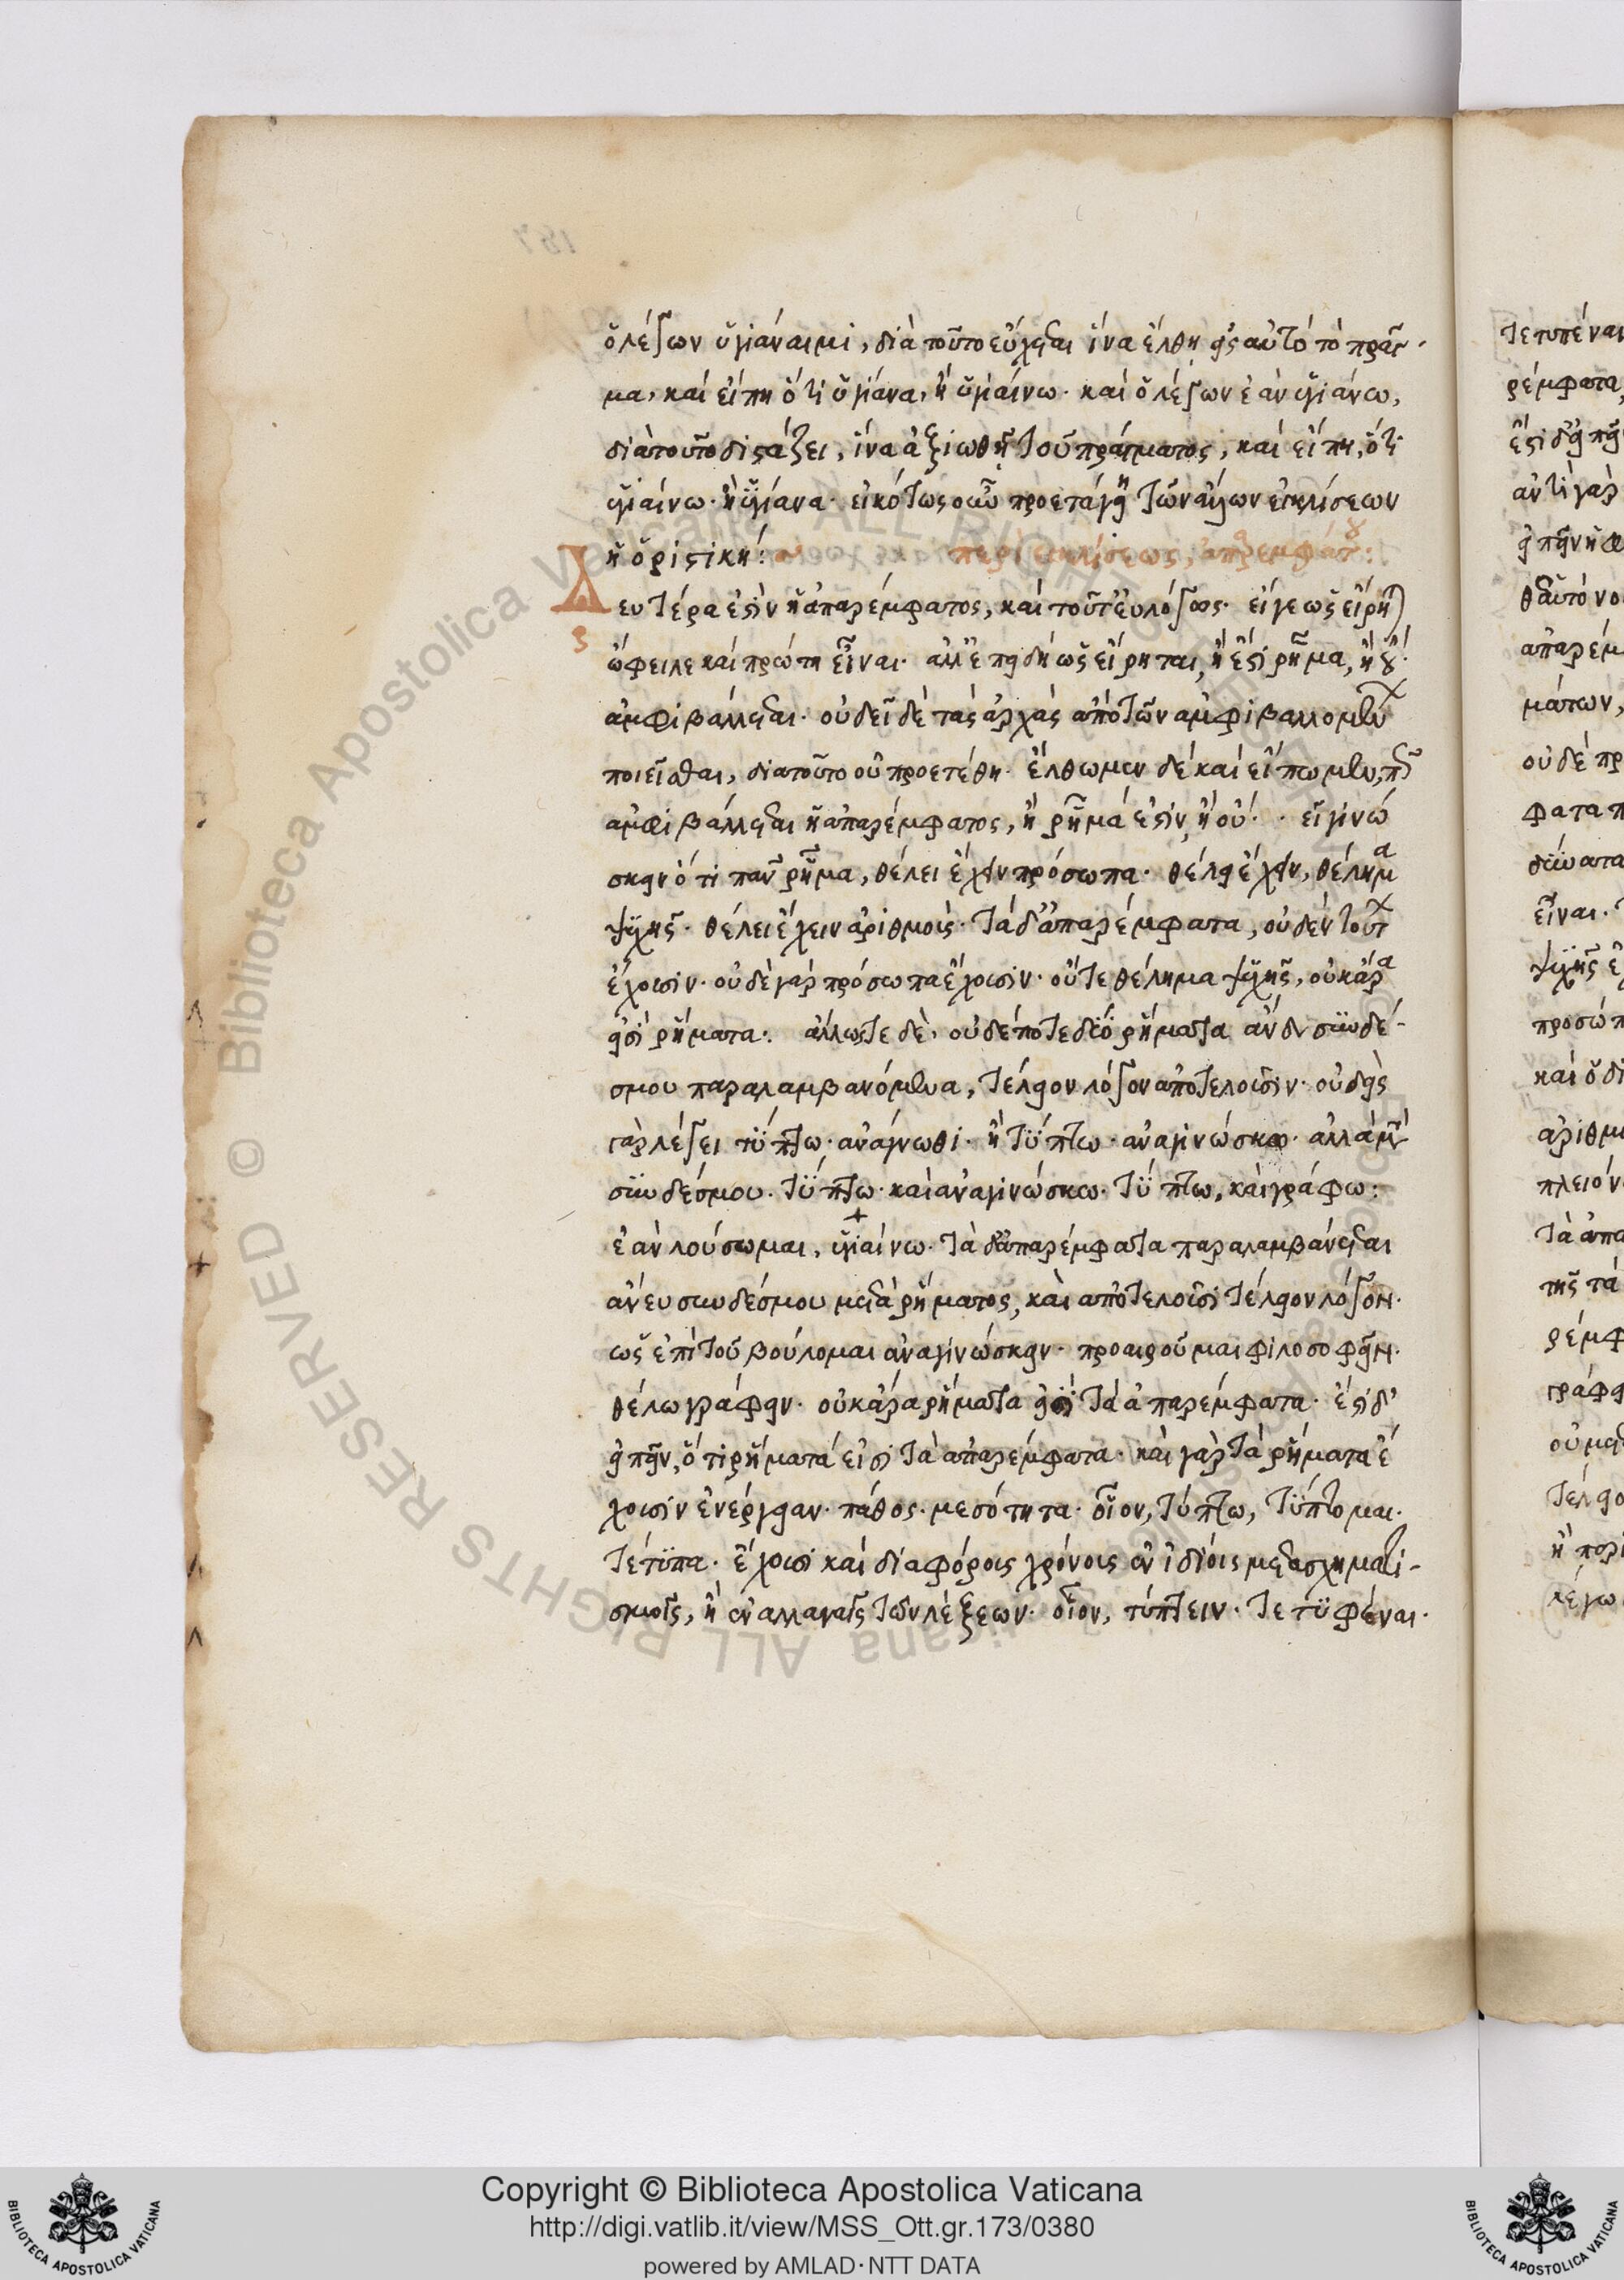 ὁ λέγων ὑγιάναιμι, διὰ τοῦτο εὔχεται ἵνα ἔλθη εἰς αὐτό τὸ πρᾶγ-
μα, καί εἴπη ὅτι ὑγίανα, ἢ ὑγιαίνω. καί ὁ λέγων ἐὰν ὑγιάνω,
διὰ τοῦτο διστάζει, ἵνα ἀξιωθῇ τοῦ πράγματος, καί εἴπη, ὅτι
ὑγιαίνω. ἢ ὑγίανα. εἰκότως οὖν προετάγη τῶν ἄλλων ἐγκλίσεων
ἡ ὁριστική: περὶ ἐγκλίσεως, ἀπαρεμφάτου:
Δευτέρα ἐστὶν ἡ ἀπαρέμφατος, καί τοῦτ' εὐλόγως. εἴγε ὡς εἴρηται
ὤφειλε καί πρώτη εἶναι. ἀλλ' ἐπειδή ὡς εἴρηται, ἢ ἐστί ρῆμα, ἢ οὔ.
ἀμφιβάλλεται. οὐ δεῖ δὲ τὰς ἀρχάς ἀπό τῶν ἀμφιβαλλομένων
ποιεῖσθαι, διατοῦτο οὐ προετέθη. ἔλθωμεν δέ καί εἴπωμεν, πῶς
ἀμφιβάλλεται ἡ ἀπαρέμφατος, ἢ ρῆμά ἐστίν, ἢ οὐ. εἰ γινώ
σκειν ὅτι πᾶν ρῆμα, θέλει ἔχειν πρόσωπα. θέλει ἔχειν, θέλημα
ψυχῆς. θέλει ἔχειν ἀριθμούς. τά δ' ἀπαρέμφατα, οὐδέν τούτων
ἔχουσιν. οὐδὲ γάρ πρόσωπα ἔχουσιν. οὔτε θέλημα ψυχῆς, οὐκ ἄρα
εἰσί ρήματα: ἄλλωστε δὲ, οὐδέποτε δύο ρήματα ἄνευ συνδέ-
σμου παραλαμβανόμενα, τέλειον λόγον ἀποτελοῦσιν. οὐδεὶς
γὰρ λέγει τύπτω. ἀνάγνωθι. ἢ τύπτω. ἀναγινώσκω. ἀλλὰ μετὰ
συνδέσμου. τύπτω. καὶ ἀναγινώσκω. τύπτω, καὶ γράφω:
ἐὰν λούσωμαι, ὑγιαίνω. τὰ δ' ἀπαρέμφατα παραλαμβάνεται
ἄνευ συνδέσμου μετὰ ρήματος, καὶ ἀποτελοῦσι τέλειον λόγον.
ὡς ἐπὶ τοῦ βούλομαι ἀναγινώσκειν. προαιροῦμαι φιλοσοφεῖν.
θέλω γράφειν. οὐκ ἄρα ρήματα εἰσί τὰ ἀπαρέμφατα. ἔστι δ'
εἰπεῖν, ὅτι ρήματά εἰσι τὰ ἀπαρέμφατα. καὶ γὰρ τὰ ρήματα ἔ
χουσιν ἐνέργειαν. πάθος. μεσότητα. οἷον, τύπτω, τύπτομαι.
τέτυπα. ἔχουσι καί διαφόρους χρόνους ἐν ἰδίοις μετασχηματι-
σμοῖς, ἢ ἐν ἀλλαγαῖς τῶν λέξεων. οἷον, τύπτειν. τετυφέναι.
τετυπέναι
ρέμφατα
ἔστι δ' εἰπεῖν
ἀντὶ γάρ
ἀπαρέμ
μάτων,
οὐδέ πρ
φατα π
εἶναι.
ψυχῆς
προσώπ
καί ὁ δ
ἀριθμ
πλείον
τὰ ἀπα
τῆς τά
ρέμφ
γράφει
λέγω
Copyright © Biblioteca Apostolica Vaticana
http://digi.vatlib.it/view/MSS_Ott.gr.173/0380
powered by AMLAD·NTT DATA